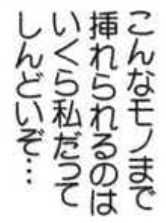 こんなモノまで
挿れられるのは
いくら私だって
しんどいぞ…